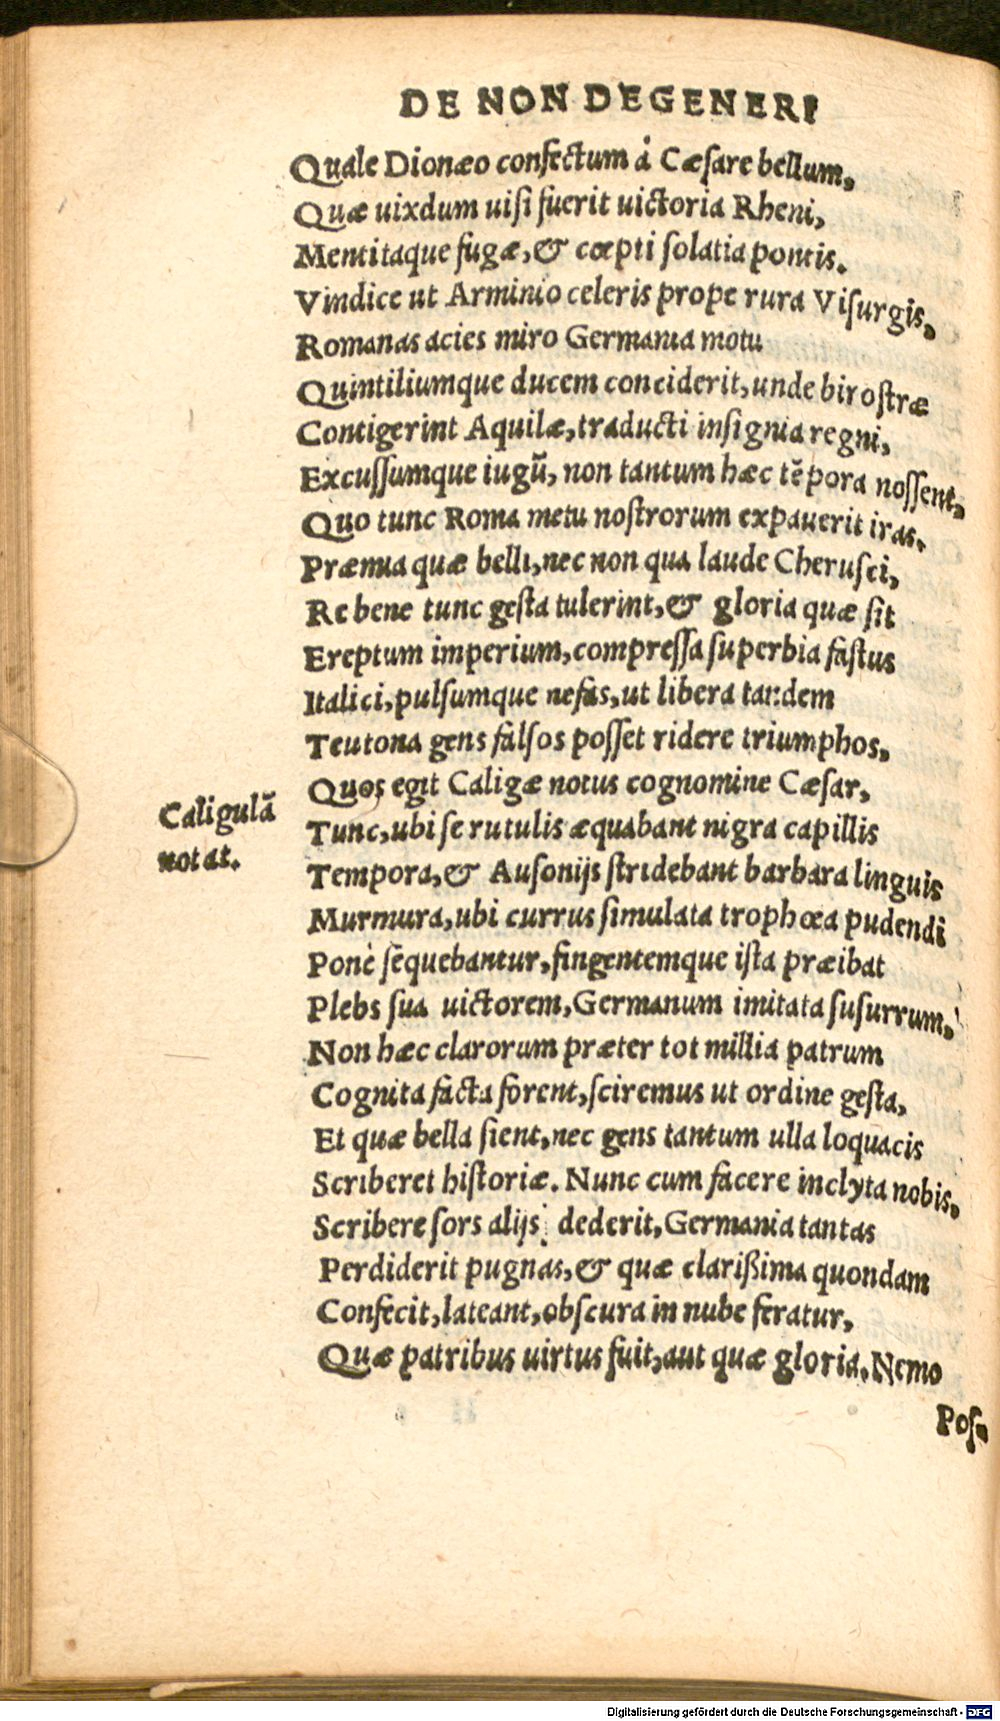 DE NON DEGENERI
Quale Dionæo confectum à Cæsare bellum,
Quæ uixdum uisi fuerit uictoria Rheni,
Mentitaque fugæ, & cœpti solatia pontis.
Vindice ut Arminio celeris prope rura Visurgis,
Romanas acies miro Germania motu
Quintiliumque ducem conciderit, unde birostræ
Contigerint Aquilæ, traducti insignia regni,
Excussumque iugũ, non tantum hæc tẽpora nossent,
Quo tunc Roma metu nostrorum expauerit iras.
Præmia quæ belli, nec non qua laude Cherusci,
Re bene tunc gesta tulerint, & gloria quæ sit
Ereptum imperium, compressa superbia fastus
Italici, pulsumque nefas, ut libera tandem
Teutona gens falsos posset ridere triumphos,
Quos egit Caligæ notus cognomine Cæsar,
Caligulã
notat.
Tunc, ubi se rutulis æquabant nigra capillis
Tempora, & Ausonijs stridebant barbara linguis
Murmura, ubi currus simulata trophœa pudendi
Ponè sequebantur, fingentemque ista præibat
Plebs sua uictorem, Germanum imitata susurrum,
Non hæc clarorum præter tot millia patrum
Cognita facta forent, sciremus ut ordine gesta,
Et quæ bella sient, nec gens tantum ulla loquacis
Scriberet historiæ. Nunc cum facere inclyta nobis,
Scribere sors alijs dederit, Germania tantas
Perdiderit pugnas, & quæ clarißima quondam
Confecit, lateant, obscura in nube feratur,
Quæ patribus uirtus fuit, aut quæ gloria. Nemo
Pos-
Digitalisierung gefördert durch die Deutsche Forschungsgemeinschaft - DFG